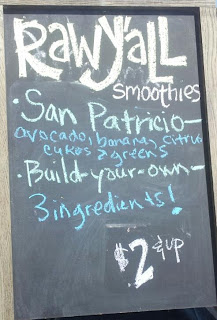 RAWY'ALL
smoothies
• San Patricio-
avocado, banana, citrus
cukes & greens
• Build-your-own-
3 ingredients!
$2 & up